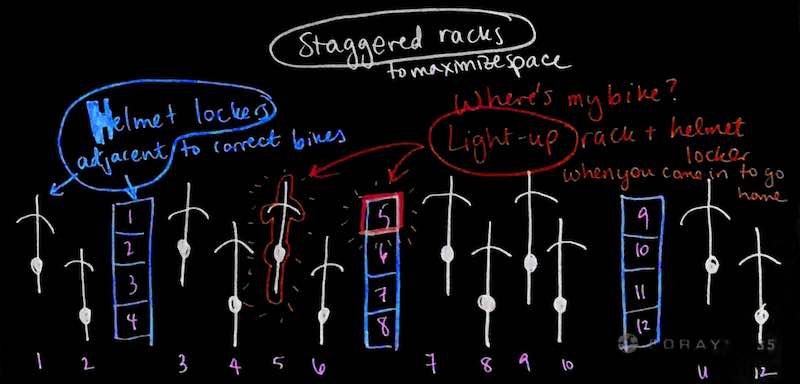 Staggered racks
to maximize space
Helmet lockers
adjacent to correct bikes
Where's my bike?
Light-up rack + helmet
locker
when you come in to go
home
1
2
3
4
5
6
7
8
9
10
11
12
1 2 3 4 5 6 7 8 9 10 11 12
FORAY 35